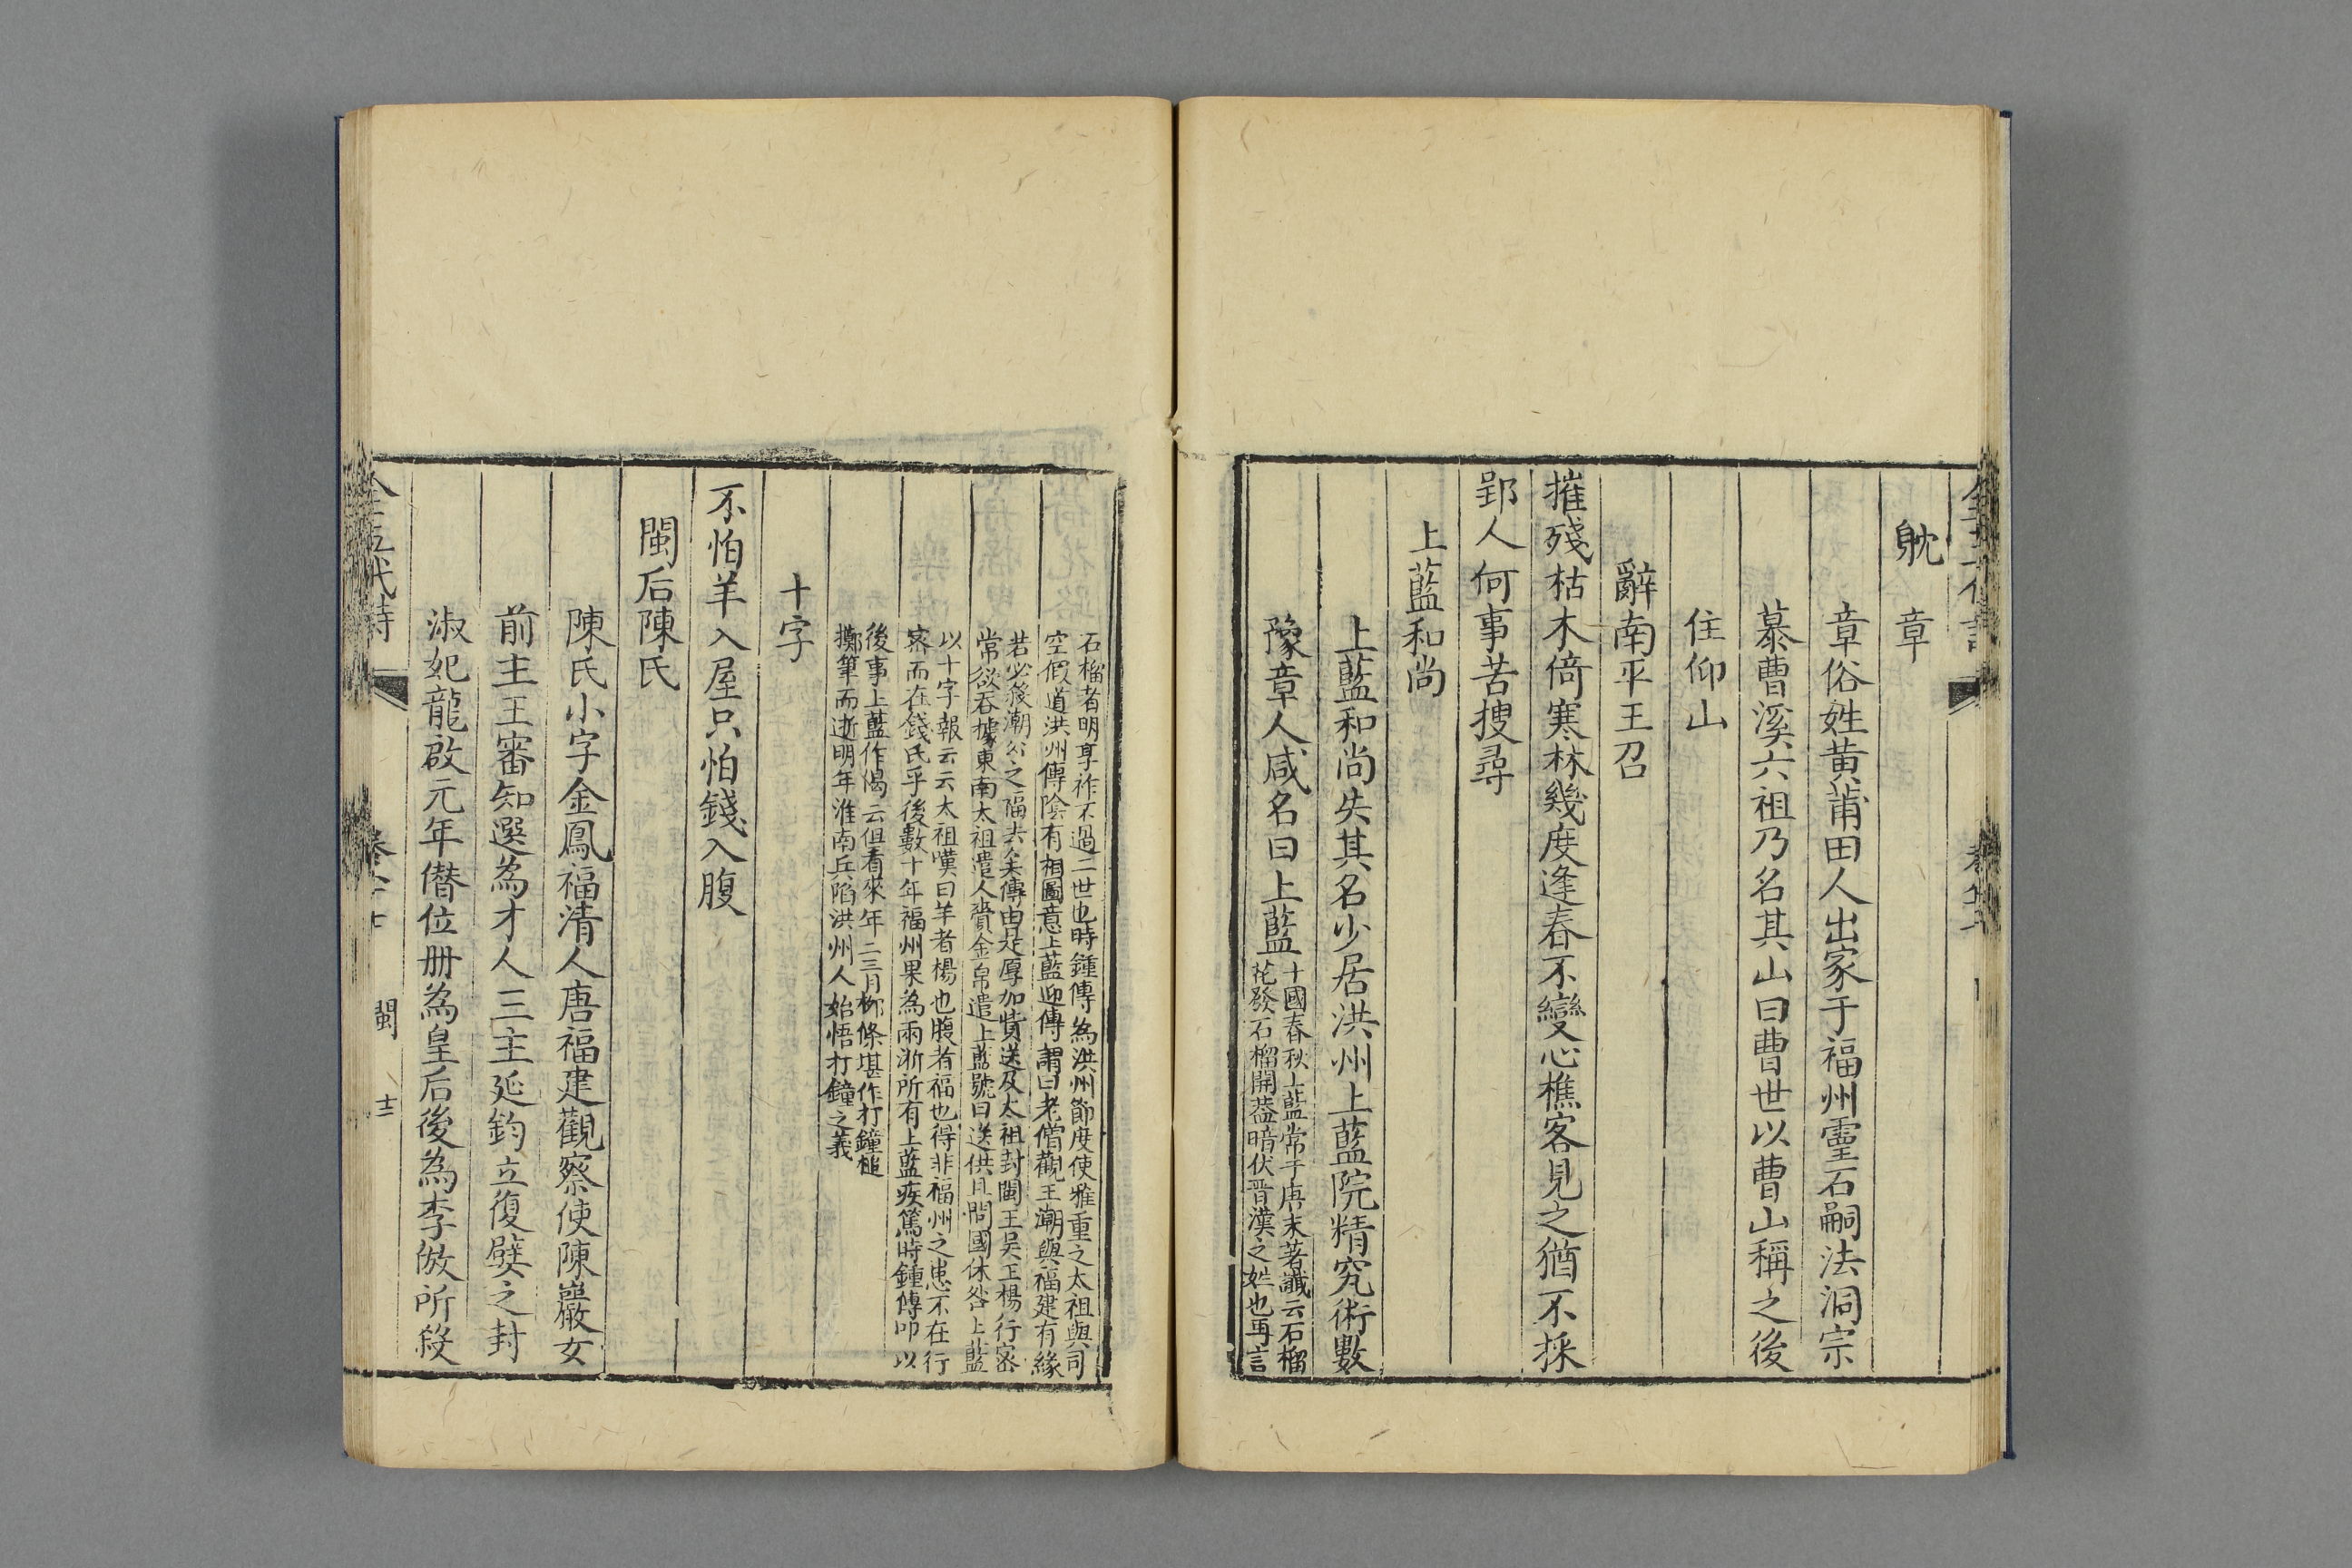 躭章
章俗姓黄莆田人出家于福州靈石嗣法洞宗
慕曹溪六祖乃名其山曰曹世以曹山稱之後
住仰山
辭南平王召
摧殘枯木倚寒林幾度逢春不變心樵客見之猶不採
郢人何事苦搜尋
上藍和尚
上藍和尚失其名少居洪州上藍院精究術數
豫章人咸名曰上藍
十國春秋上藍常于唐末著讖云石榴
花發石榴開葢暗伏晋漢之姓也再言
石榴者明享祚不過二世也時鍾傳為洪州節度使雅重之太祖與司
空假道洪州傳陰有相圖意上藍迎傳謂曰老僧觀王潮與福建有緣
若必殺潮公之福去矣傳由是厚加贄送及太祖封閩王吳王楊行密
常欲吞據東南太祖遣人賫金帛遣上藍號曰送供且問國休咎上藍
以十字報云云太祖嘆曰羊者楊也腹者福也得非福州之患不在行
密而在錢氏乎後數十年福州果為兩浙所有上藍疾篤時鍾傳叩以
後事上藍作偈云但看來年二三月柳條堪作打鐘槌
擲筆而逝明年淮南兵陷洪州人始悟打鐘之義
十字
不怕羊入屋只怕錢入腹
閩后陳氏
陳氏小字金鳳福清人唐福建觀察使陳巖女
前主王審知選為才人三主延鈞立復嬖之封
淑妃龍啟元年僭位册為皇后後為李倣所殺
全五代詩
閩
十三